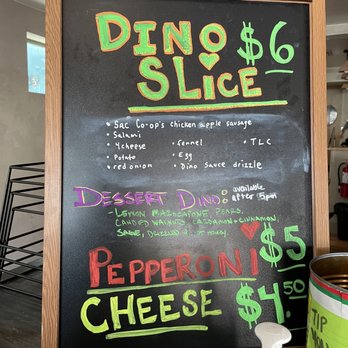 DINO $6
SLICE
• Sac Co-op's chicken apple sausage
• Salami
• 4cheese • fennel • TLC
• Potato • Egg
• red onion • Dino Sauce drizzle
DESSERT DINO: available after 5pm
- LEMON MASCARPONE, PEARS,
CANDIED WALNUTS, CARDAMON+CINNAMON,
SAGE, DRIZZLED HONEY
PEPPERONI $5
CHEESE $4.50
TIP